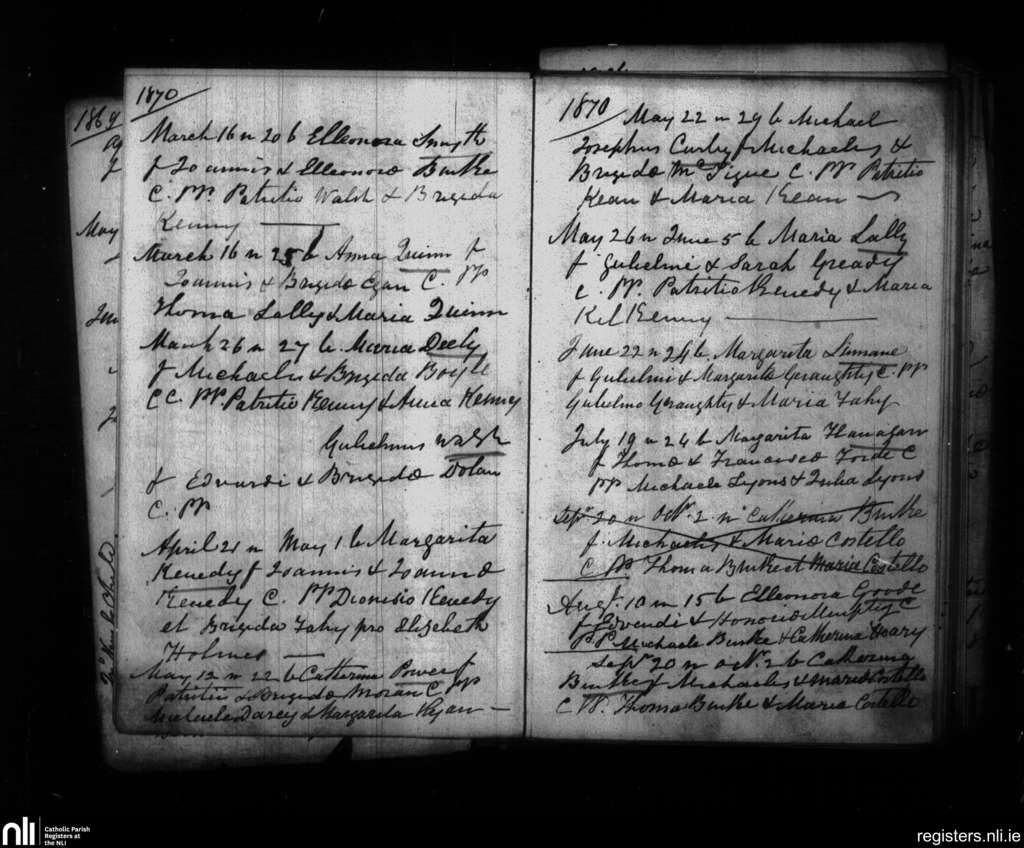 1869
May
1870
March 16 n 20 b Elleonora Smyth
f Joannis & Elleonora Burke
C. PP. Patritio Walsh & Brigeda
Kenny
March 16 n 25 b Anna Quinn f
Joannis & Brigida Egan C. PP
Thoma Lally & Maria Quinn
March 26 n 27 b. Maria Deely
f Michaelis & Brigeda Boyle
CC. PP. Patritio Kenny & Anna Kenny
Gulielmus Walsh
f Edvardi & Brigeda Dolan
C. PP
April 21 n May 1 b Margarita
Kenedy f Joannis & Joanna
Kenedy C. PP Dionisio Kenedy
et Brigida Fahy pro Elizabeth
Holmes
May 12 n 22 b Catherina Power f
Patritii & Brigida Moran C. PP
Michaele Darcy & Margarita
1870
May 22 n 29 b Michael
Josephus Curley f Michaelis &
Brigida C. PP Patritio
Kean & Maria Kean
May 26 n June 5 b Maria Lally
f Gulielmi & Sarah Gready
C. PP. Patritio Kenedy & Maria
Kilkenny
June 22 n 26 b. Margarita Linnane
f Gulielmi & Margarita Geraughty C. PP
Gulielmo Geraughty & Maria Fahy
July 19 n 24 b Margarita Flanagan
f Thoma & Francisca Forde C
PP Michaele Lyons & Julia Lyons
Sepr 20 n Octr. 2. n Catherina Burke
f. Michaelis & Maria Costello
C PP Thoma Burke et Maria Costello
Augt. 10 n 15 b Elleonora Goode
f Edvardi & Honoria C
PP Michaele Burke & Catherina
Sepr 20 n octr. 2 b Catherina
Burke f Michaelis & Maria Costello
C PP. Thoma Burke & Maria Costello
nli
Catholic Parish
Registers at
the NLI
registers.nli.ie